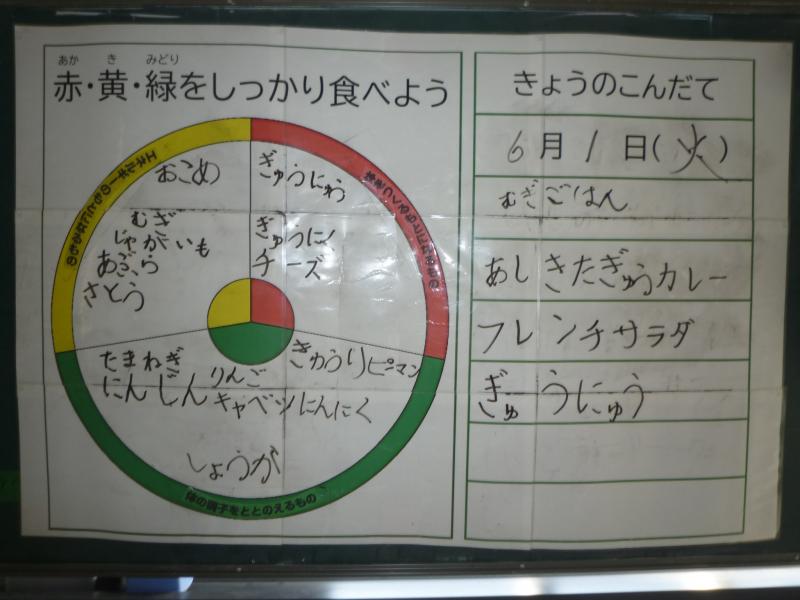 あか き みどり
赤・黄・緑をしっかり食べよう
エネルギーのもとになるもの
おこめ
むぎ
じゃがいも
あぶら
さとう
体をつくるもとになるもの
ぎゅうにゅう
ぎゅうにく
チーズ
たまねぎ
にんじん
りんご
きゅうり ピーマン
キャベツ にんにく
しょうが
体の調子をととのえるもの
きょうのこんだて
6月1日(火)
むぎごはん
あしきたぎゅうカレー
フレンチサラダ
ぎゅうにゅう